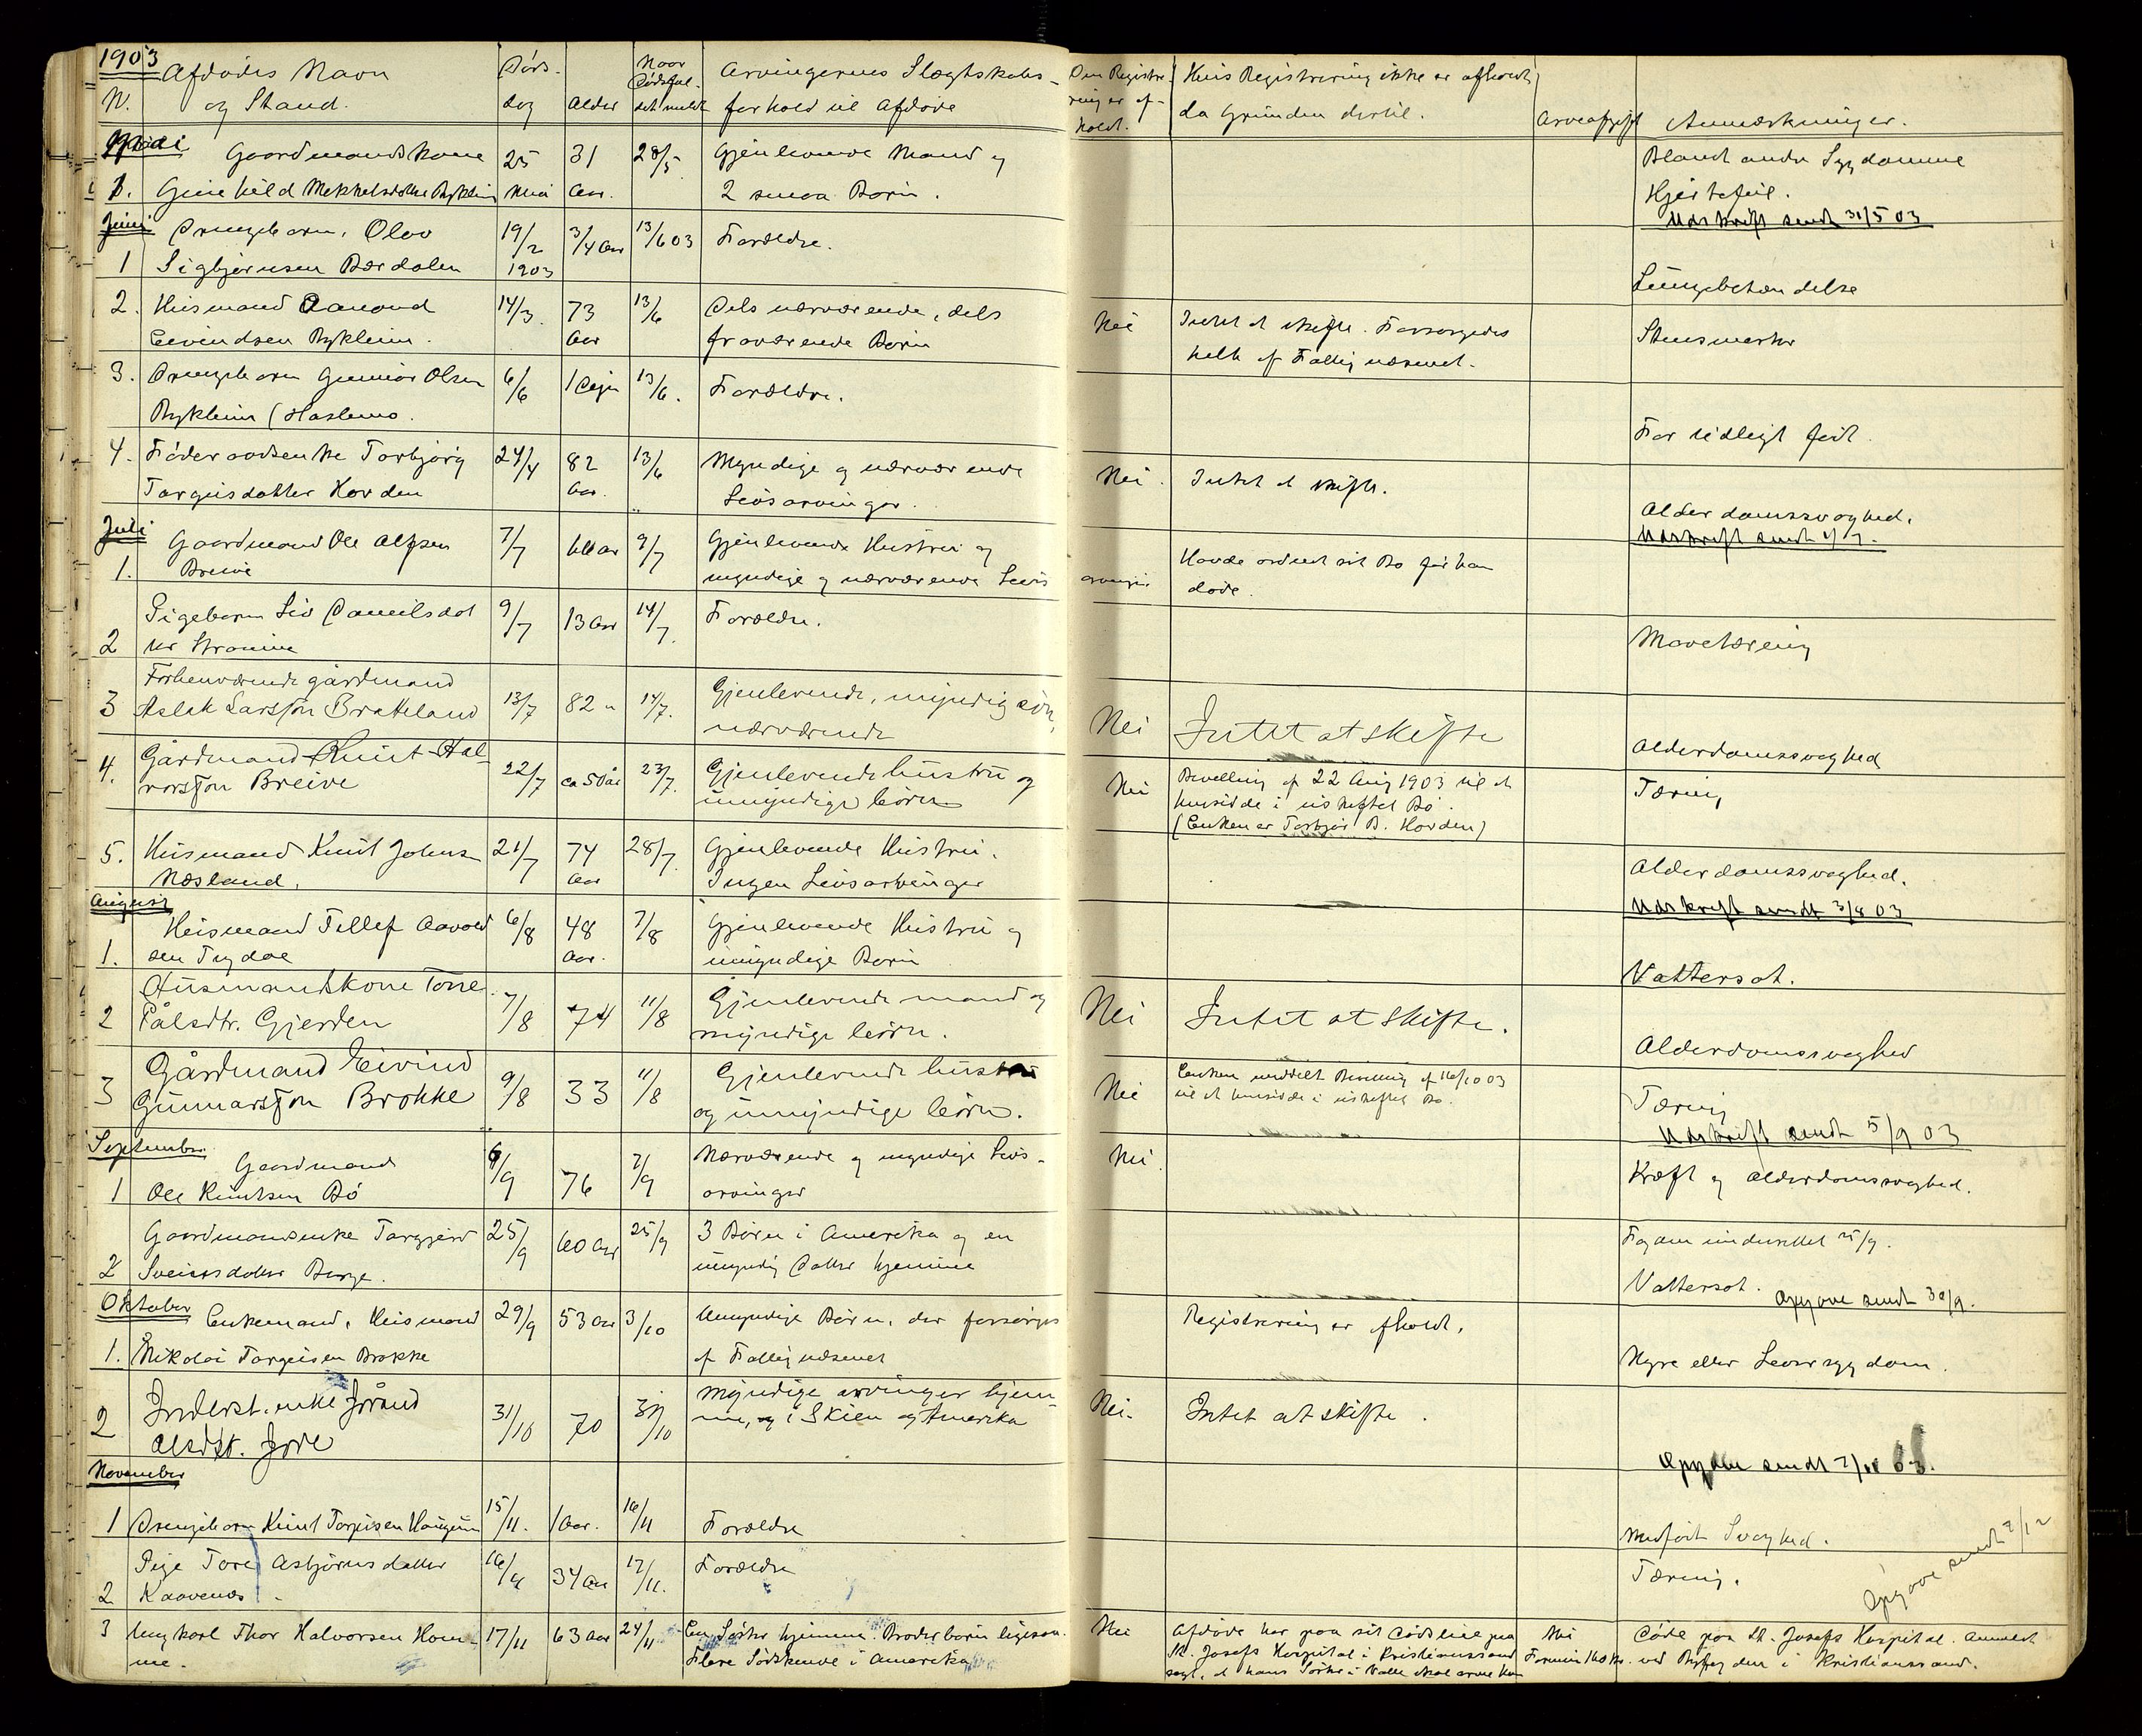 1903
N.
Afdødes Navn
og Stand.
Døds-
dag
Alder
Naar
Dødsfal-
det meldt
Arvingernes Slægtskabs-
forhold til Afdøde
Om Registre-
ring er af-
holdt.
Hvis Registrering ikke er afholdt,
da Grunden dertil.
Arveafgift
Anmærkninger.
Mai
1.
Gaardmandskone
Gunhild Mikkelsdatter Rykhim
25
Mai
31
Aar.
28/5
Gjenlevende Mand og
2 smaa Børn.
Blandt andre Sygdomme
Hjertefeil.
Udskrift sendt 31/5 03
Juni
1
Drengebarn, Olav
Sigbjørnsen Bærdalen
19/2
1903
3/4 Aar
13/6 03
Forældre.
Lungebetændelse
2.
Husmand Aanund
Eivindsen Rykhim.
14/3.
73
Aar
13/6
Dels nærværende, dels
fraværende Børn
Nei
Intet at skifte. Forsørgedes
helt af Fattigvæsenet.
Stensmerter
3.
Drengebarn Gunnar Olsen
Rykhim (Haslemo.
6/6
1 Døgn
13/6.
Forældre.
For tidligt født.
4.
Føderaadsenke Torbjørg
Torgeisdatter Hovden
24/4
82
Aar.
13/6
Myndige og nærværende
Livsarvinger.
Nei.
Intet at skifte.
Alderdomssvaghed.
Udskrift sendt 4/7.
Juli
1.
Gaardmand Ole Alfsen
Breive
7/7
Aar
9/7
Gjenlevende Hustru og
myndige og nærværende Livs
arvinger
Havde ordnet sit Bo før han
døde.
2
Pigebarn Liv Daniilsdat
ter Straume
9/7
13 Aar
14/7.
Forældre.
Mavetæring
3
Forhenværende gårdmand
Aslak Larsson Bratteland
13/7
82 "
14/7.
Gjenlevende, myndig søn,
nærværende
Nei
Intet at skifte
Alderdomssvaghed
4.
Gårdmand Knut Hal-
vorsson Breive
22/7
ca 50 år
23/7.
Gjenlevende hustru og
umyndige børn
Nei
Bevilling af 22 Aug 1903 til at
hensidde i uskiftet Bo.
(Enken er Torbjør B. Hovden)
Tæring
5.
Husmand Knut Johns-
Næsland.
21/7
74
Aar
28/7.
Gjenlevende Hustru.
Ingen Livsarvinger
Alderdomssvaghed.
Udskrift sendt 3/8 03
August
1.
Husmand Tellef Aavold
sen Trydal
6/8
48
Aar.
7/8
Gjenlevende Hustru og
umyndige Børn
Vattersot.
2
Husmandskone Torre
Pålsdtr. Gjerden
7/8
74
11/8
Gjenlevende mand og
myndige børn.
Nei
Intet at skifte.
Alderdomssvaghed
3
Gårdmand Eivind
Gunnarsson Brokke
9/8
33
11/8
Gjenlevende hustru
og umyndige børn.
Nei
Enken meddelt Bevilling af 16/10 03
til at hensidde i uskiftet Bo.
Tæring
Udskrift sendt 5/9 03
September
1
Gaardmand
Ole Knutsen Bø
6/9
76
7/9
Nærværende og myndige Livs-
arvinger
Nei.
Kræft og Alderdomssvaghed.
2
Gaardmandsenke Torgjerd
Sveinsdatter Berge.
25/9
60 Aar
25/9
3 Børn i Amerika og en
umyndig Datter hjemme
Fogden underrettet 25/9.
Vattersot.
Opgave sendt 30/9.
Oktober
1.
Enkemand, Husmand
Nikolai Torgeisen Brokke
29/9
53 Aar
3/10
Umyndige Børn, der forsørges
af Fattigvæsenet
Registrering er afholdt.
Nyre eller Leversygdom.
2
Inderst. enke Jorånd
Olsdtr. Jore
31/10
70
31/10
Myndige arvinger hjem-
me, og i Skien og Amerika
Nei.
Intet at skifte.
Opgave sendt 2/11 03.
November
1
Drengebarn Knut Torgeisen Haugum
15/11.
1 Aar.
16/11
Forældre
Medfødt Svaghed.
2
Pige Tore Asbjørnsdatter
Kaavenæs.
16/11
34 Aar
17/11.
Forældre
Tæring.
Opgave sendt 2/12
3
Ungkarl Thor Halvorsen Hom-
me.
17/11
63 Aar
24/11
En Søster hjemme. Broderbørn ligesaa.
Flere Sødskende i Amerika
Nei
Afdøde har paa sit Dødsleie paa
St. Josefs Hospital i Kristianssand
sagt, at hans Søster i Valle skal arve ham
Nei
Døde paa St. Josefs Hospital. Anmeldt
ved Byfogden i Kristianssand.